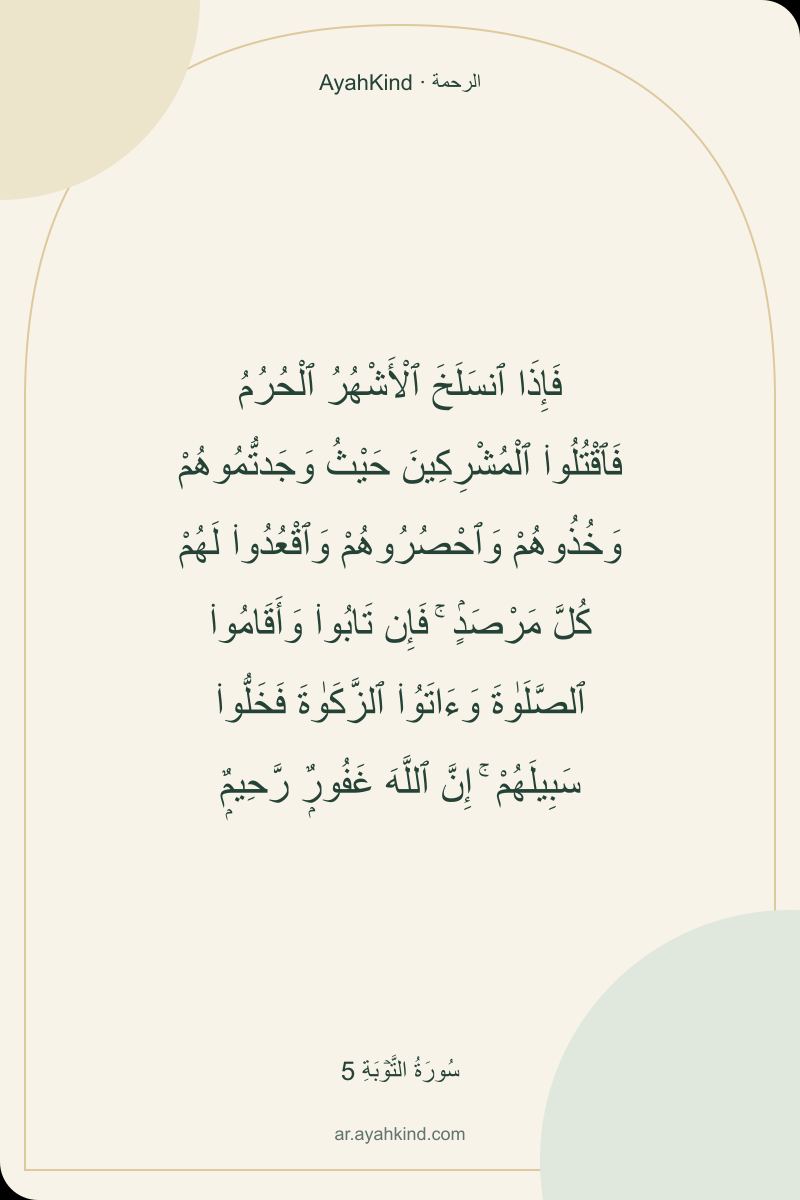 AyahKind · الرحمة
فَإِذَا ٱنسَلَخَ ٱلْأَشْهُرُ ٱلْحُرُمُ
فَٱقْتُلُوا۟ ٱلْمُشْرِكِينَ حَيْثُ وَجَدتُّمُوهُمْ
وَخُذُوهُمْ وَٱحْصُرُوهُمْ وَٱقْعُدُوا۟ لَهُمْ
كُلَّ مَرْصَدٍۢ ۚ فَإِن تَابُوا۟ وَأَقَامُوا۟
ٱلصَّلَوٰةَ وَءَاتَوُا۟ ٱلزَّكَوٰةَ فَخَلُّوا۟
سَبِيلَهُمْ ۚ إِنَّ ٱللَّهَ غَفُورٌۭ رَّحِيمٌۭ
سُورَةُ التَّوۡبَةِ 5
ar.ayahkind.com